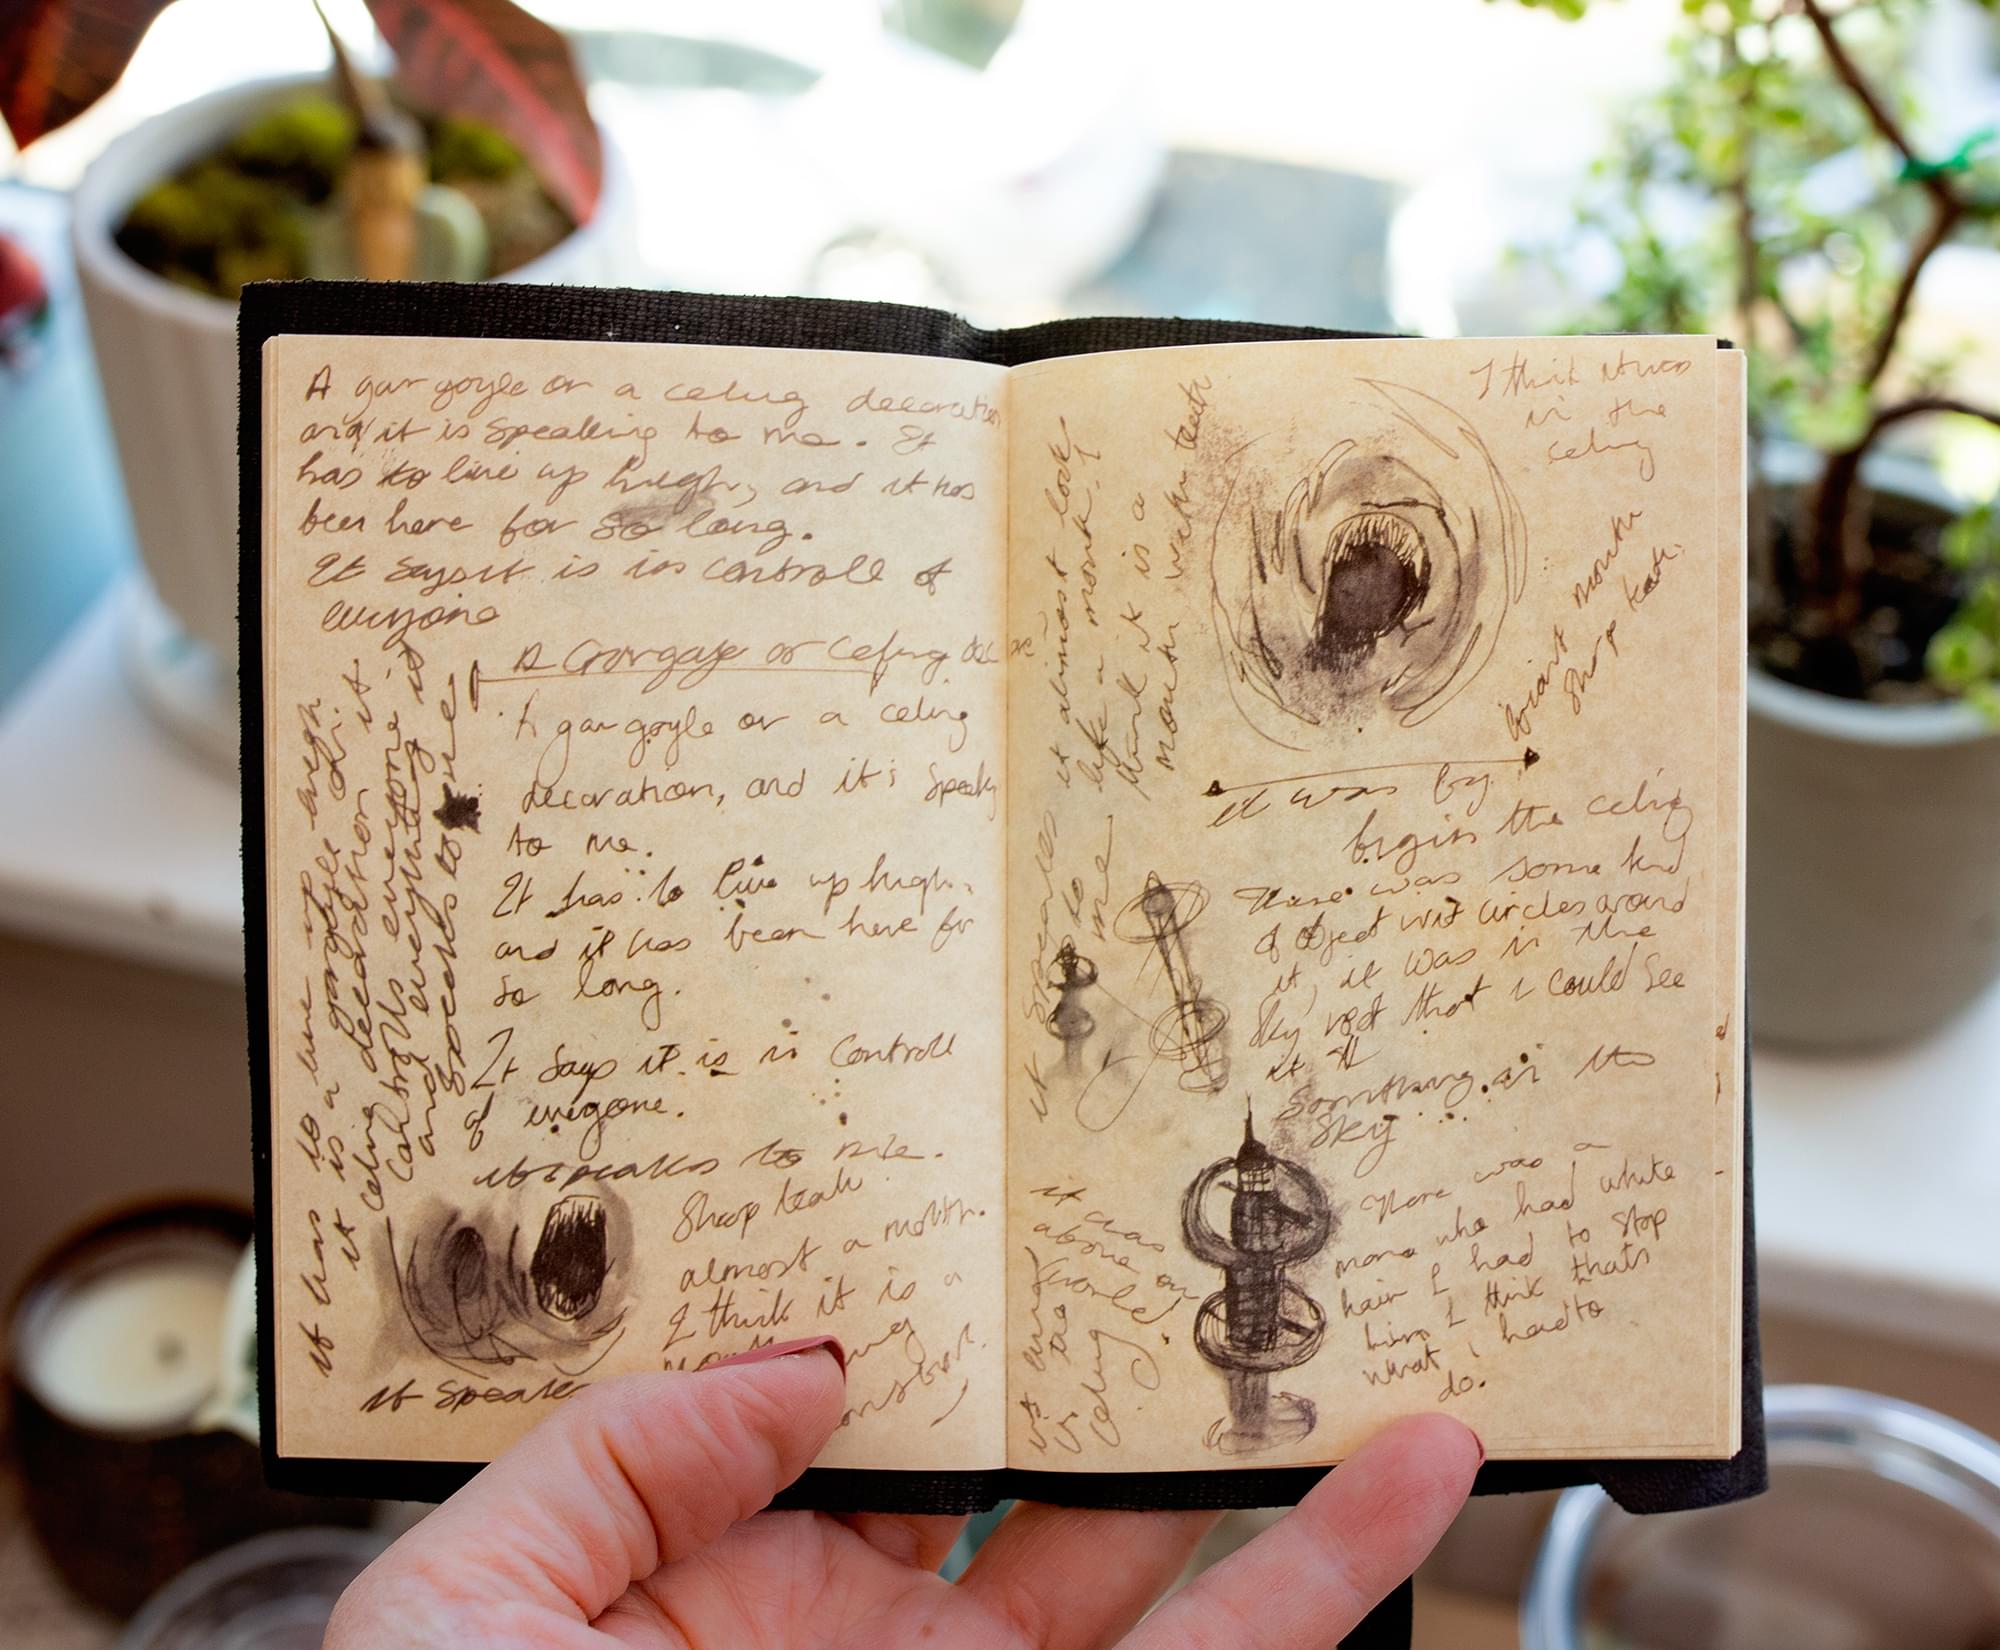 A gargoyle or a celing decoration
and it is speaking to me. It
has to live up high, and it has
been here for so long.
It says it is in controll of
everyone
A Gorgayle or Celing dec
A gargoyle or a celing
decoration, and it's speaky
to me.
It has to live up high,
and it has been here for
so long.
It says it is in controll
of everyone.
it speaks to me.
Sharp teath
almost a mouth.
I think it is a
it speaks
it has to live up high
it is a gargoyle or
celing decoration it
controlls everyone
and everything it
speeks to me
it almost look
like a mouth. I
think it is a
mouth with teeth
it speakes
to
me
I think it was
in the
celing
Giant mouth
Sharp teath.
it was by
begin the celing
There was some kind
of object wit circles around
it, it was in the
sky that I could see
it
Something in the
sky...
There was a
mana who had white
hair I had to stop
him I think thats
what i had to
do.
it was
above our
world
it lives
in the
celing